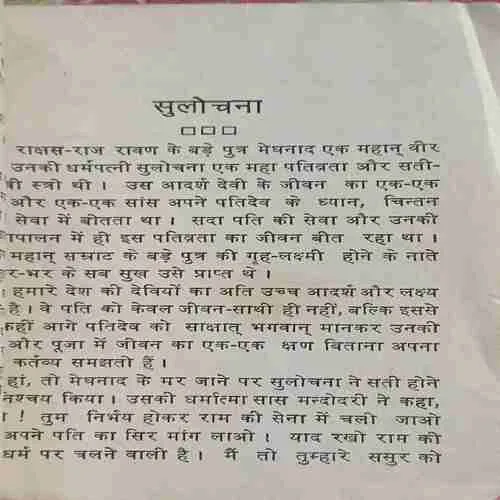 सुलोचना
राक्षस-राज रावण के बड़े पुत्र मेघनाद एक महान् वीर
उनकी धर्मपत्नी सुलोचना एक महा पतिव्रता और सती-
वी स्त्री थी । उस आदर्श देवी के जीवन का एक-एक
और एक-एक सांस अपने पतिदेव के ध्यान, चिन्तन
सेवा में बीतता था । सदा पति की सेवा और उनकी
ापालन में ही इस पतिव्रता का जीवन बीत रहा था ।
महान् सम्राट के बड़े पुत्र की गृह-लक्ष्मी होने के नाते
र-भर के सब सुख उसे प्राप्त थे ।
हमारे देश की देवियों का अति उच्च आदर्श और लक्ष्य
है । वे पति को केवल जीवन-साथी ही नहीं, बल्कि इससे
कहीं आगे पतिदेव को साक्षात् भगवान् मानकर उनकी
और पूजा में जीवन का एक-एक क्षण बिताना अपना
कर्तव्य समझती हैं ।
हां, तो मेघनाद के मर जाने पर सुलोचना ने सती होने
नश्चय किया । उसकी धर्मात्मा सास मन्दोदरी ने कहा,
। ! तुम निर्भय होकर राम की सेना में चली जाओ
अपने पति का सिर मांग लाओ । याद रखो राम की
धर्म पर चलने वाली है । मैं तो तुम्हारे ससुर को